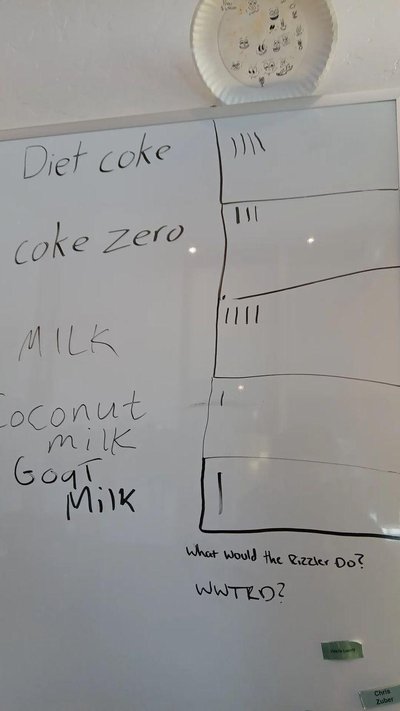 Diet coke
coke zero
MILK
Coconut
milk
Goat
Milk
What would the Rizzler Do?
WWTRD?
Chris
Zuber